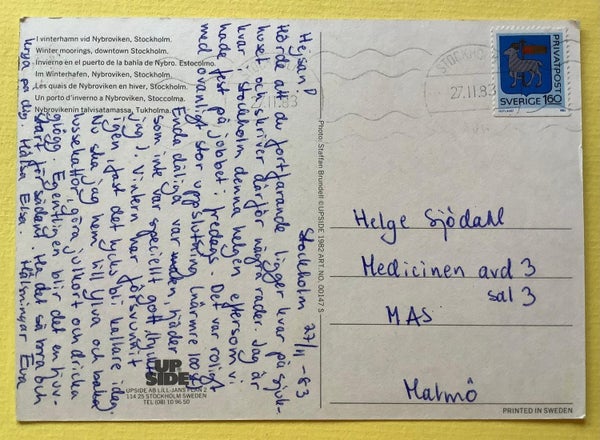 I vinterhamn vid Nybroviken, Stockholm.
Winter moorings, downtown Stockholm.
Invierno en el puerto de la bahía de Nybro. Estocolmo.
Im Winterhafen, Nybroviken, Stockholm.
Les quais de Nybroviken en hiver, Stockholm.
Un porto d'inverno a Nybroviken, Stoccolma.
Nybrovikenin talvisatamassa, Tukholma.
Stockholm 27/11-83
Hejsan!
Hörde att du fortfarande ligger kvar på sjuk-
huset och skriver därför några rader. Jag är
kvar i Stockholm denna helgen eftersom vi
hade fest på jobbet i fredags. Det var roligt
med ovanligt stor uppslutning, närmre 100 st.
Enda dåliga var maten,
som inte var speciellt gott
jag). Vintern har försvunnit
igen, fast det tycks bli kallare idag.
Nu ska jag hem till Ylva och baka
lussekatter, göra julkort och dricka
glögg. Egentligen blir det en tjuv-
start för sådant. Ha det så bra och
krya på dig. Hälsa Elsa. Hälsningar Eva
Photo: Staffan Brundell ©UPSIDE 1982 ART. NO. 00147 S
UP
SIDE
UPSIDE AB LILL-JANS PLAN 2
114 25 STOCKHOLM SWEDEN
TEL (08) 10 96 50
STOCKHOLM
27.11.83
27.11.83
PRIVATPOST
SVERIGE 160
Helge Sjödahl
Medicinen avd 3
sal 3
MAS
Malmö
PRINTED IN SWEDEN